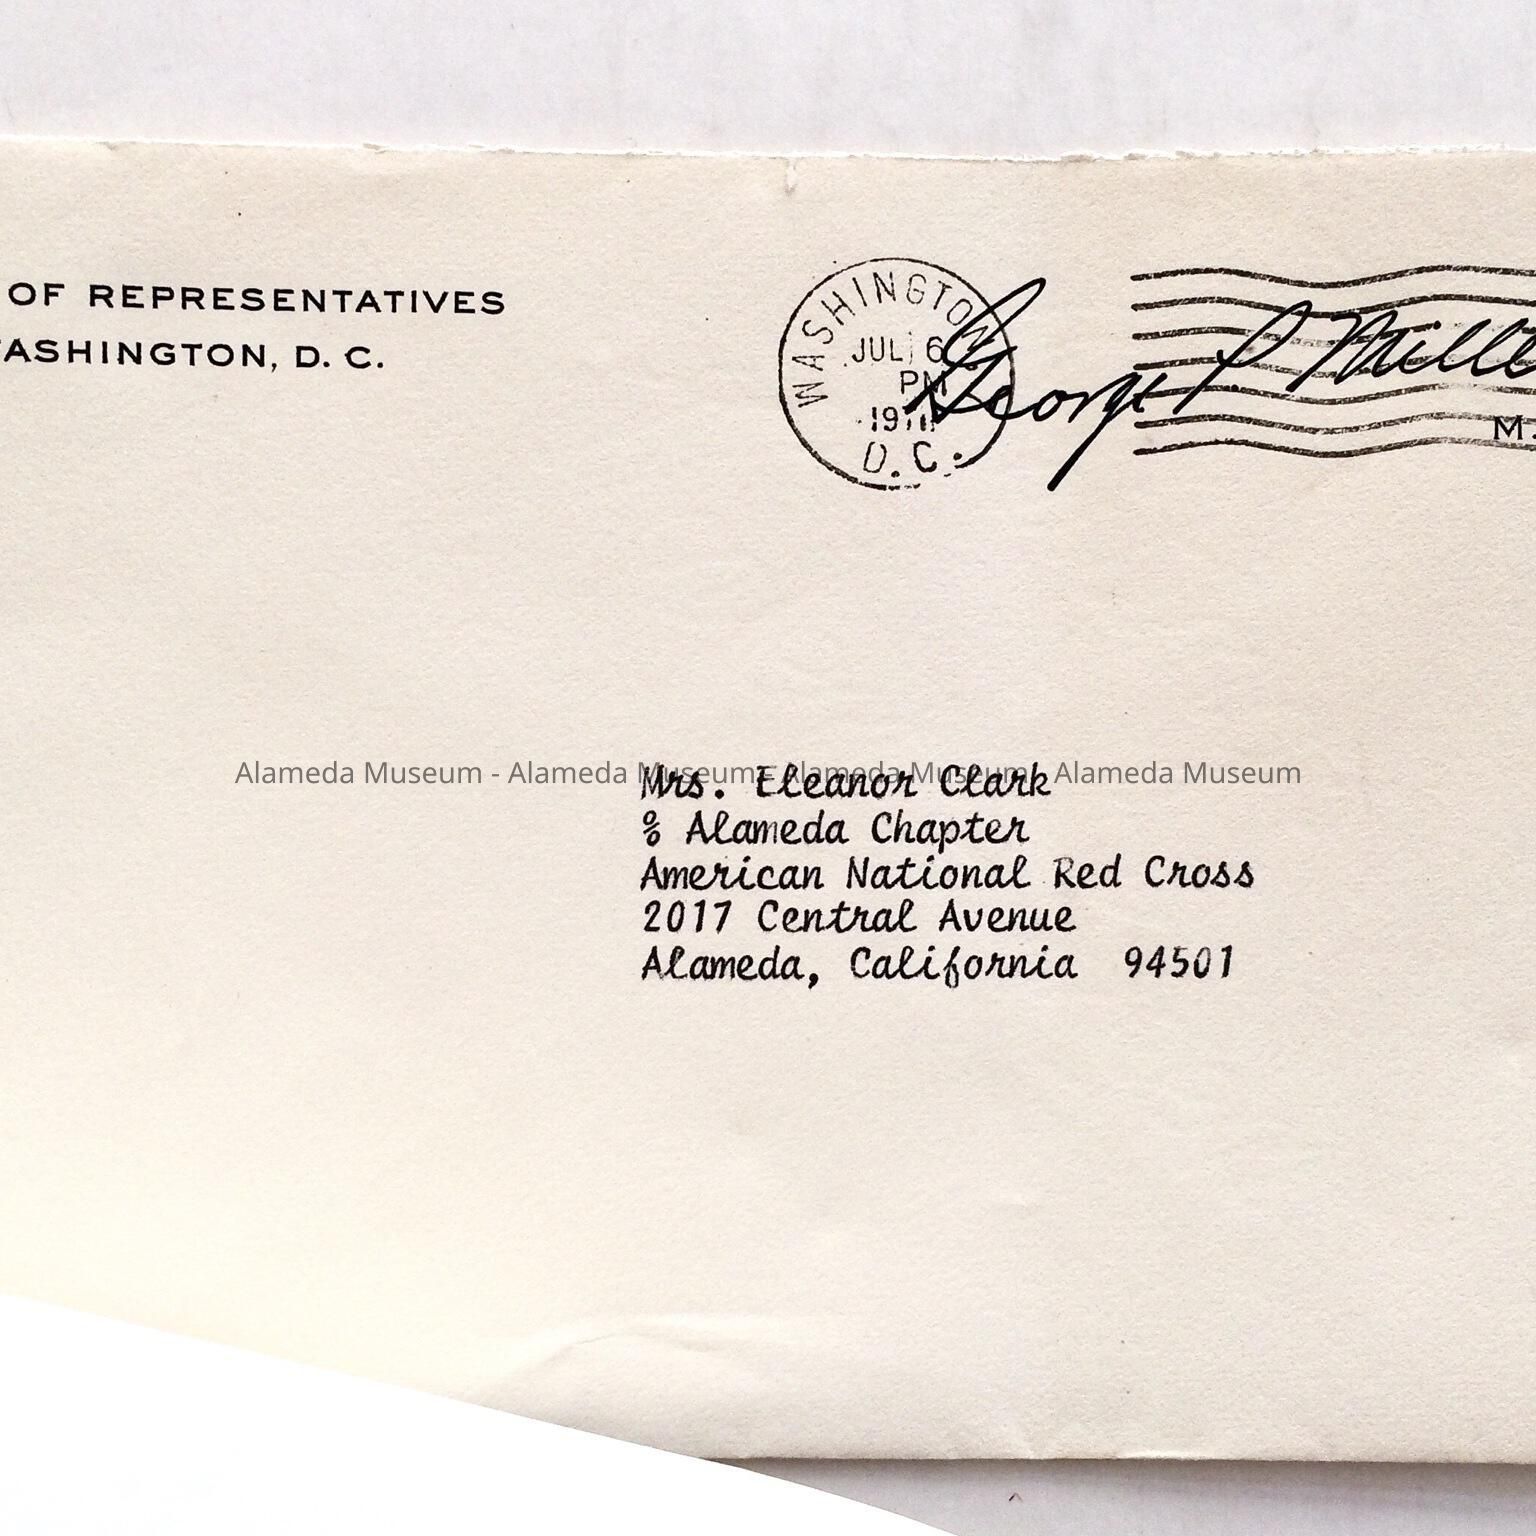 OF REPRESENTATIVES
WASHINGTON, D. C.
WASHINGTON
JUL 6
PM
D.C.
George P. Mille
M.
Alameda Museum - Alameda Museum - Alameda Museum - Alameda Museum
Mrs. Eleanor Clark
% Alameda Chapter
American National Red Cross
2017 Central Avenue
Alameda, California 94501